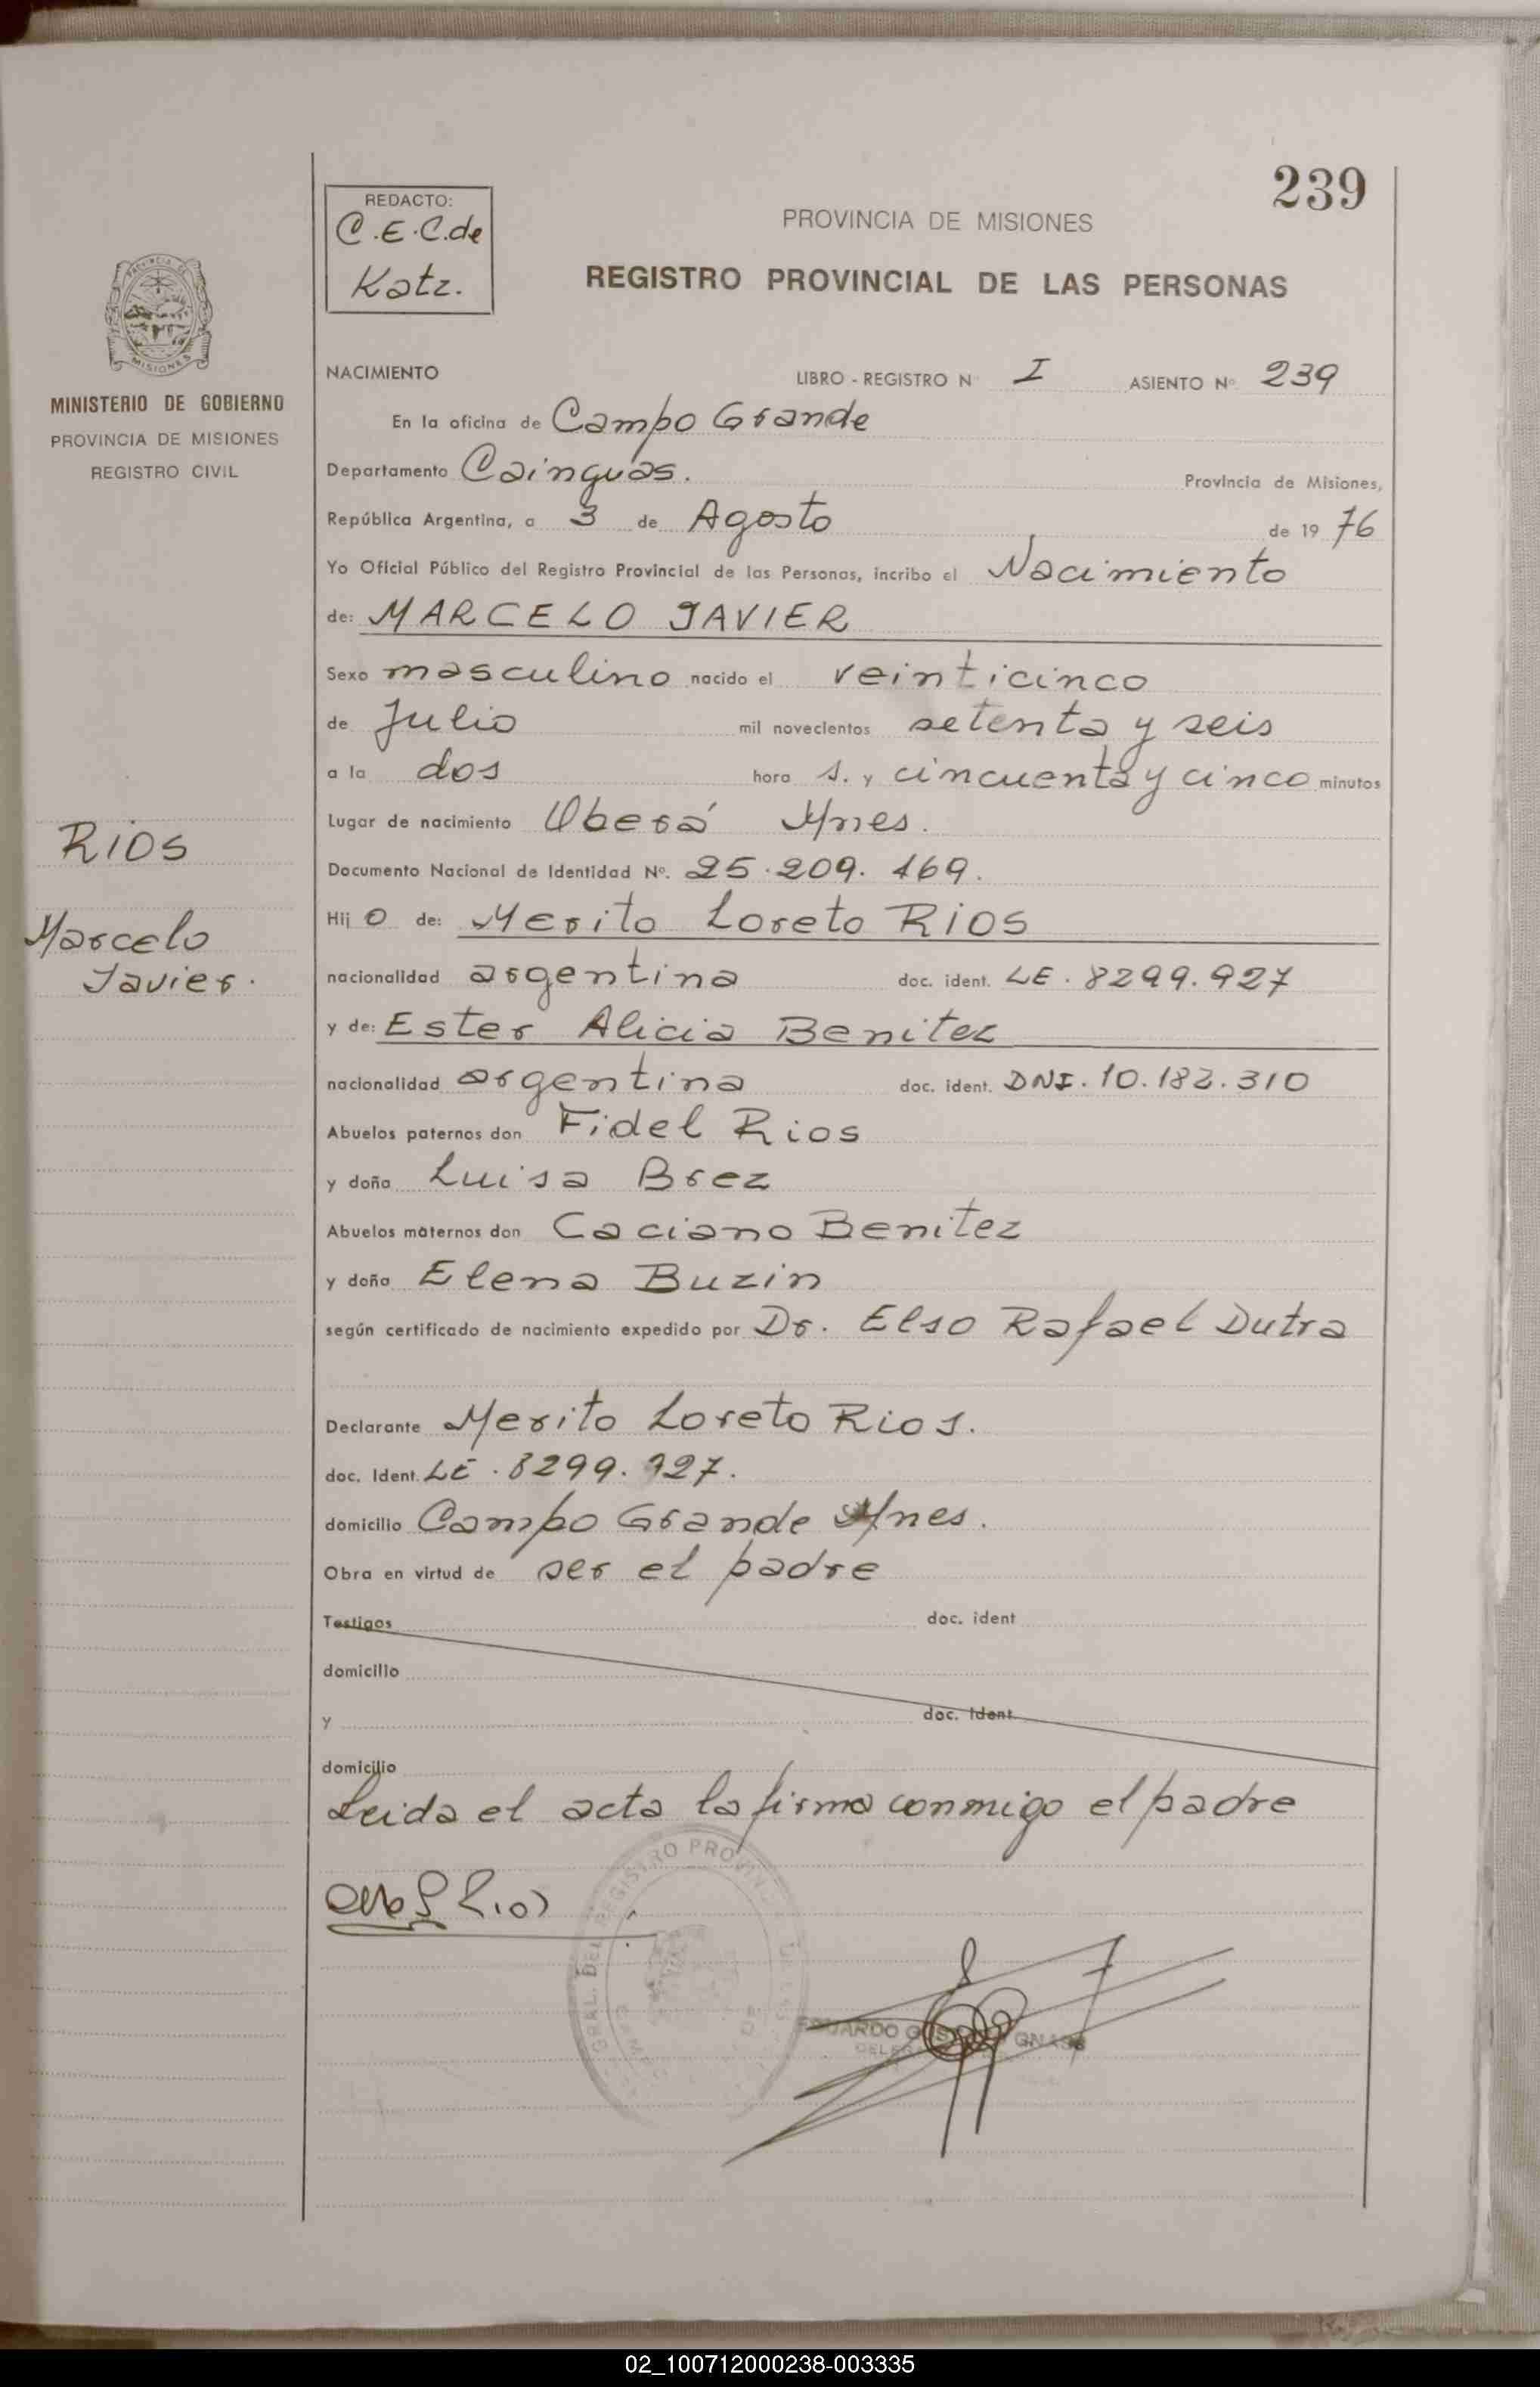 239
REDACTO:
C.E.C.de
Katz.
PROVINCIA DE MISIONES
REGISTRO PROVINCIAL DE LAS PERSONAS
PROVINCIA DE
MISIONES
MINISTERIO DE GOBIERNO
PROVINCIA DE MISIONES
REGISTRO CIVIL
RIOS
Marcelo
Javier.
NACIMIENTO LIBRO - REGISTRO Nº I ASIENTO Nº 239
En la oficina de Campo Grande
Departamento Cainguas. Provincia de Misiones,
República Argentina, a 3 de Agosto de 19 76
Yo Oficial Público del Registro Provincial de las Personas, incribo el Nacimiento
de: MARCELO JAVIER
Sexo masculino nacido el veinticinco
de Julio mil novecientos setenta y seis
a la dos hora s. y cincuenta y cinco minutos
Lugar de nacimiento Oberá Mnes.
Documento Nacional de Identidad Nº. 25.209.169.
Hij o de: Merito Loreto RIOS
nacionalidad argentina doc. ident. LE. 8299.927
y de: Ester Alicia Benitez
nacionalidad argentina doc. ident. DNI. 10.182.310
Abuelos paternos don Fidel Rios
y doña Luisa Brez
Abuelos maternos don Caciano Benitez
y doña Elena Buzin
según certificado de nacimiento expedido por Dr. Elso Rafael Dutra
Declarante Merito Loreto Rios.
doc. Ident. LE. 8299.927.
domicilio Campo Grande Mnes.
Obra en virtud de ser el padre
Testigos doc. ident
domicilio
y doc. Ident.
domicilio
Leida el acta la firma conmigo el padre
Rios
GRAL. DEL REGISTRO PROVIN
EDUARDO GNASS
02_100712000238-003335